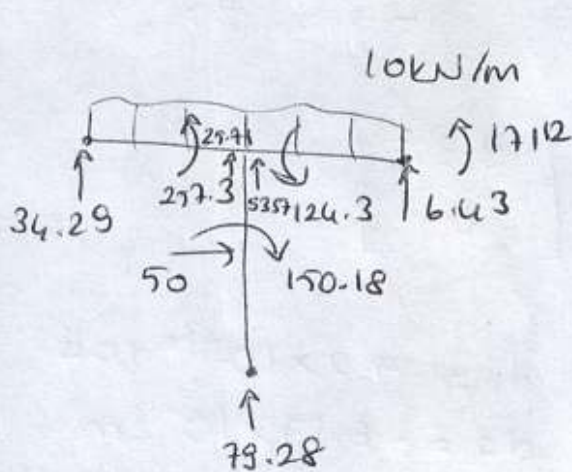 10kN/m
25.71
17112
34.29
257.3
5357
124.3
6.43
50
150.18
79.28